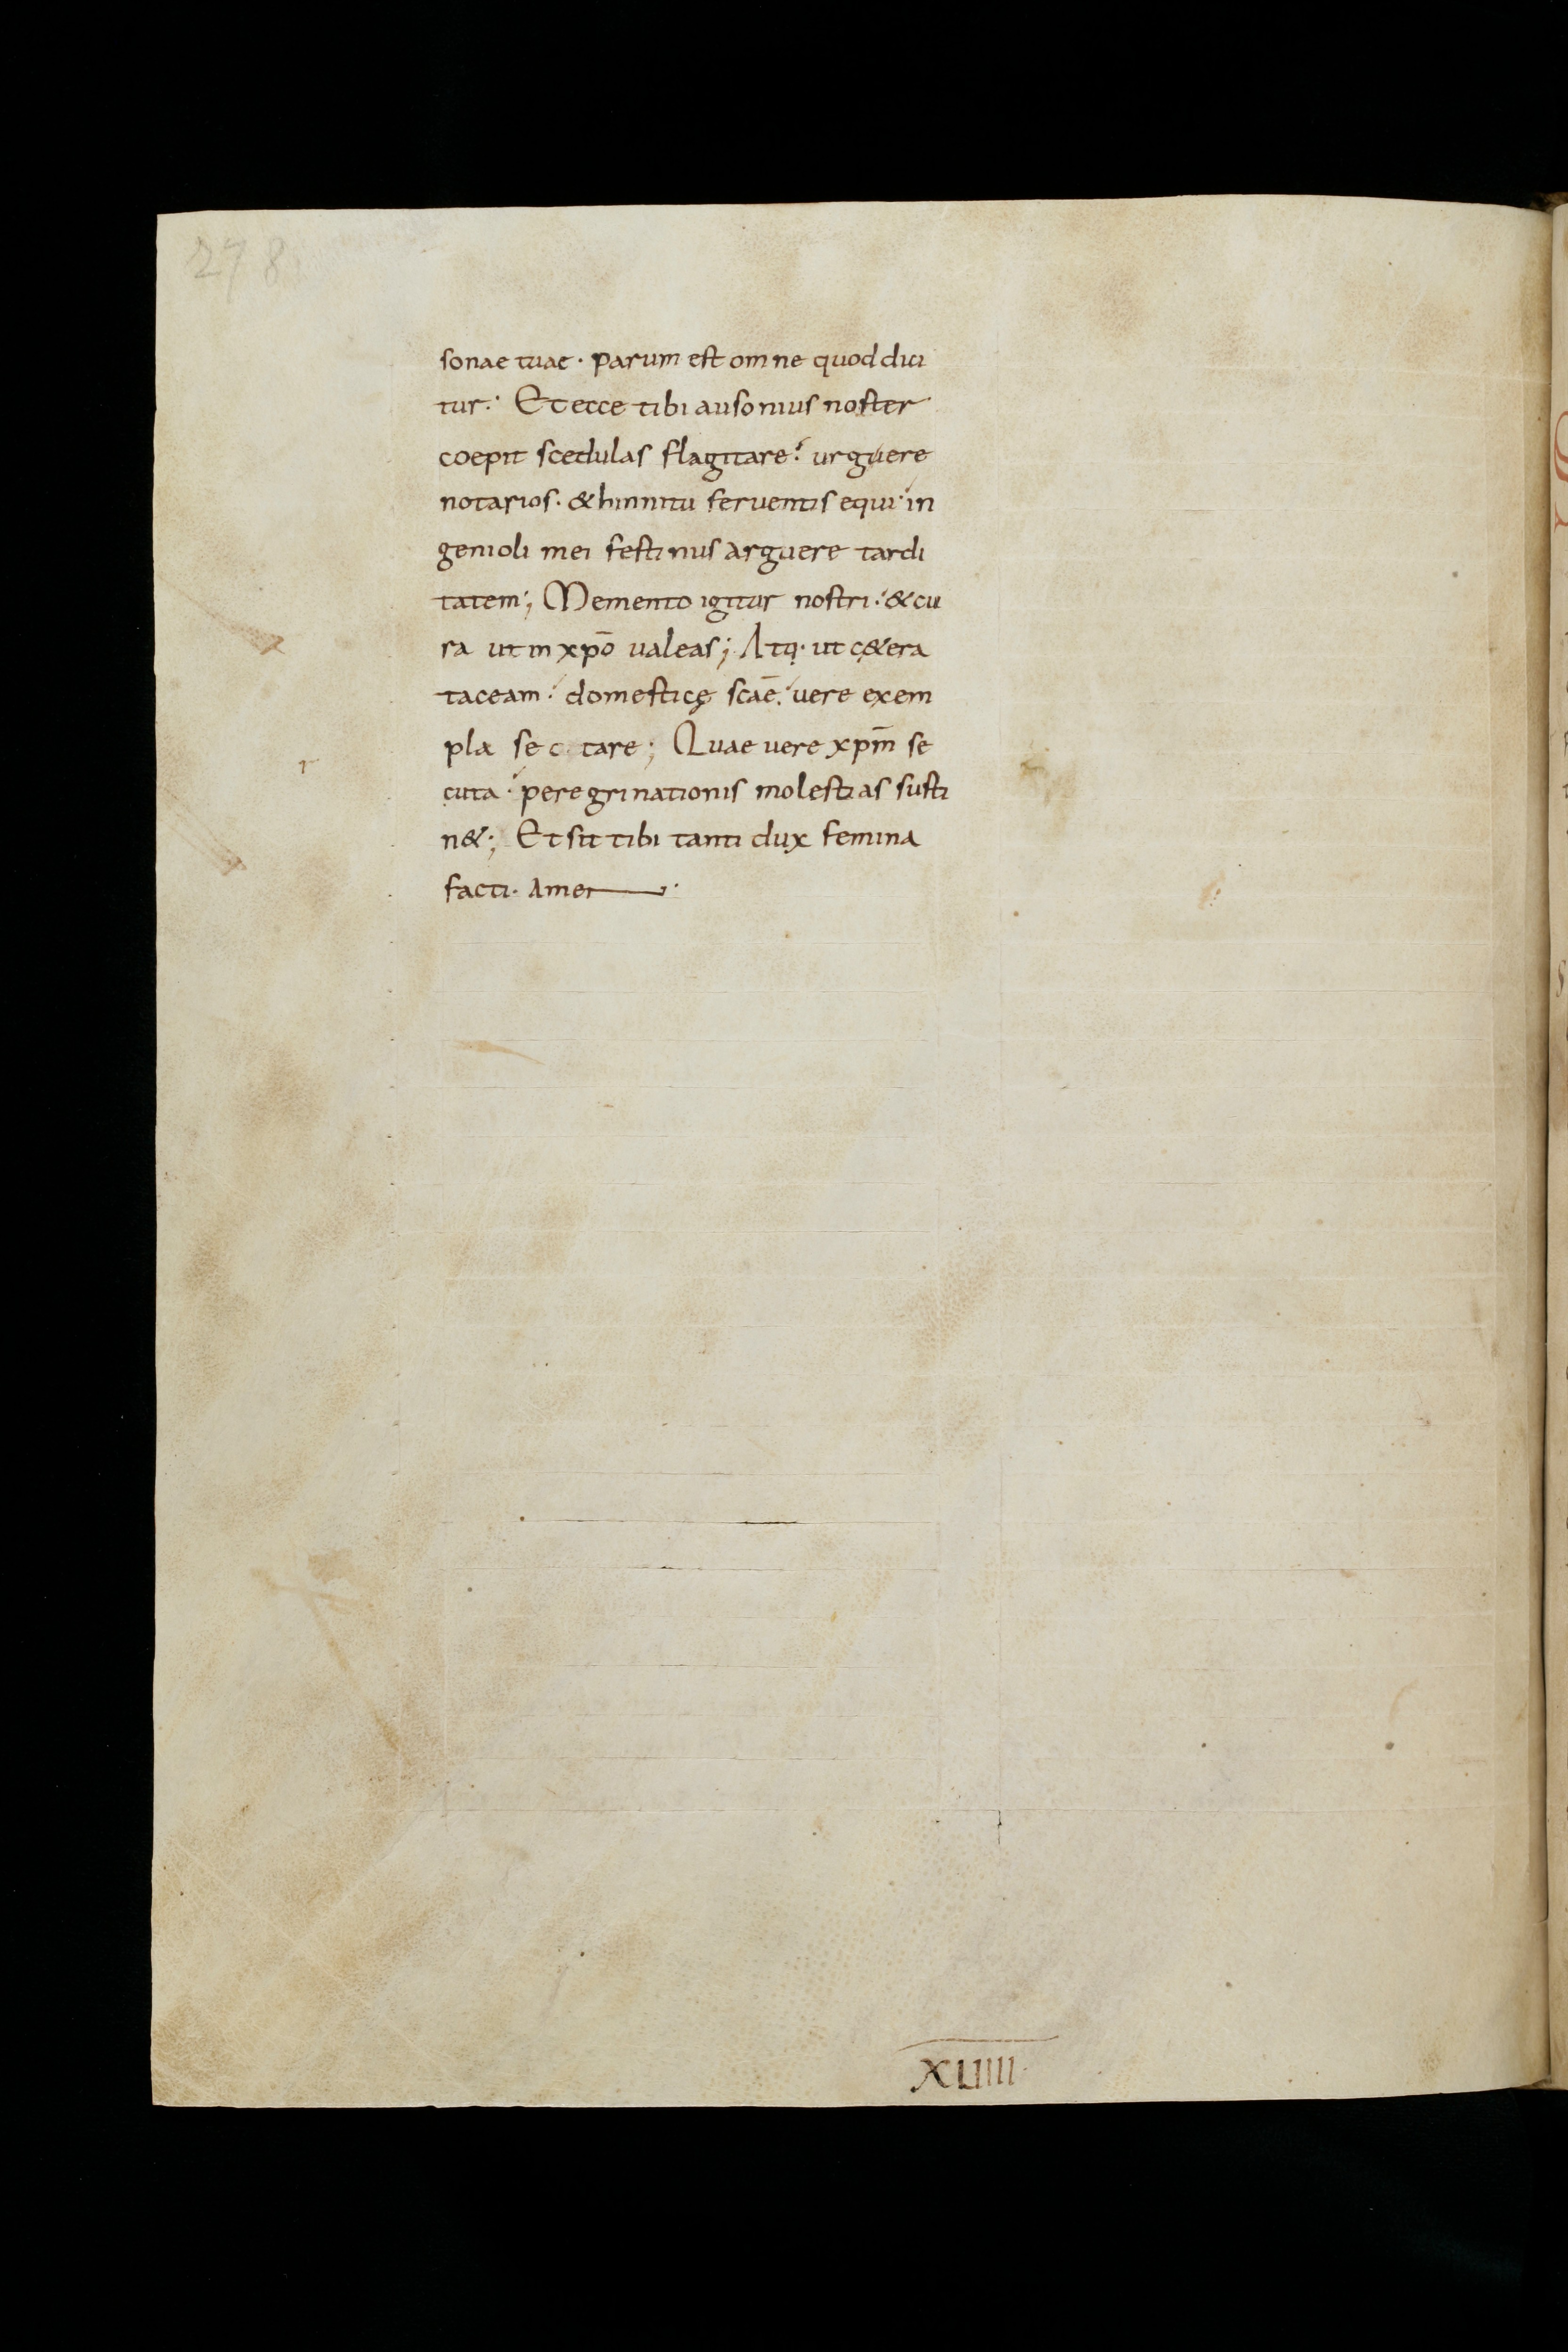 278
sonae tuae · parum est omne quod dici
tur : Et ecce tibi ausonius noster
coepit scedulas flagitare : urguere
notarios · & hinnitu feruentis equi · in
genioli mei festinus arguere tardi
tatem ; Memento igitur nostri : & cu
ra ut in xp̄o ualeas ; Atq· ut c&era
taceam : domesticę scāe . uere exem
pla sec tare ; Quae uere xpm̄ se
cuta · peregrinationis molestias susti
n& ; Et sit tibi tanti dux femina
facti · Amen ·
r
XLIIII